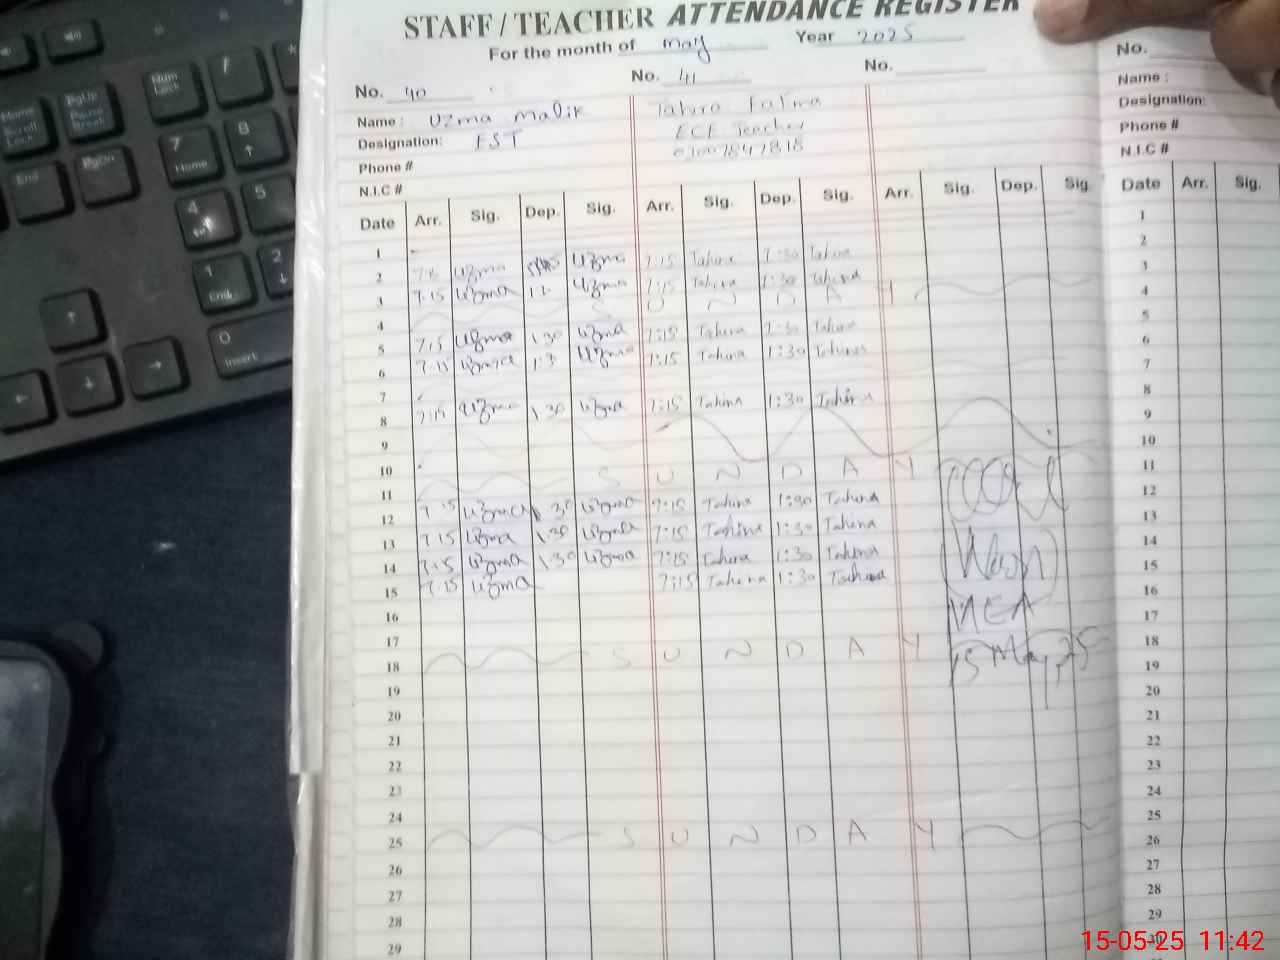 STAFF / TEACHER ATTENDANCE REGISTER
For the month of May Year 2025
No. 40 No. 41 No. No.
Name : Uzma Malik Tahira Fatma Name :
Designation: EST ECE Teacher Designation:
Phone # Phone #
N.I.C # N.I.C #
Date Arr. Sig. Dep. Sig. Arr. Sig. Dep. Sig. Arr. Sig. Dep. Sig. Date Arr. Sig.
1 1
2 Uzma Uzma 7:15 Tahira 1:30 Tahira 2
3 7.15 Uzma Uzma 7:15 Tahira 1:30 Tahira 3
4 S U N D A Y 4
5 7.15 Uzma 1.30 Uzma 7:15 Tahira 1:30 Tahira 5
6 7.15 Uzma 1.3 Uzma 7:15 Tahira 1:30 Tahira 6
7 7
8 7.15 Uzma 1.30 Uzma 7:15 Tahira 1:30 Tahira 8
9 9
10 10
11 S U N D A Y 11
12 7.15 Uzma 1.30 Uzma 7:15 Tahira 1:30 Tahira 12
13 7.15 Uzma 1.30 Uzma 7:15 Tahira 1:30 Tahira 13
14 7.15 Uzma 1.30 Uzma 7:15 Tahira 1:30 Tahira 14
15 7.15 Uzma 7:15 Tahira 1:30 Tahira 15
16 MEA 16
17 17
18 S U N D A Y 15 May, 25 18
19 19
20 20
21 21
22 22
23 23
24 24
25 S U N D A Y 25
26 26
27 27
28 28
29 29
30
15-05-25 11:42
Home
Scroll Lock
PgUp
Pause Break
Num Lock
/
*
End
PgDn
7 Home
8
4
5
1 End
2
0 Insert